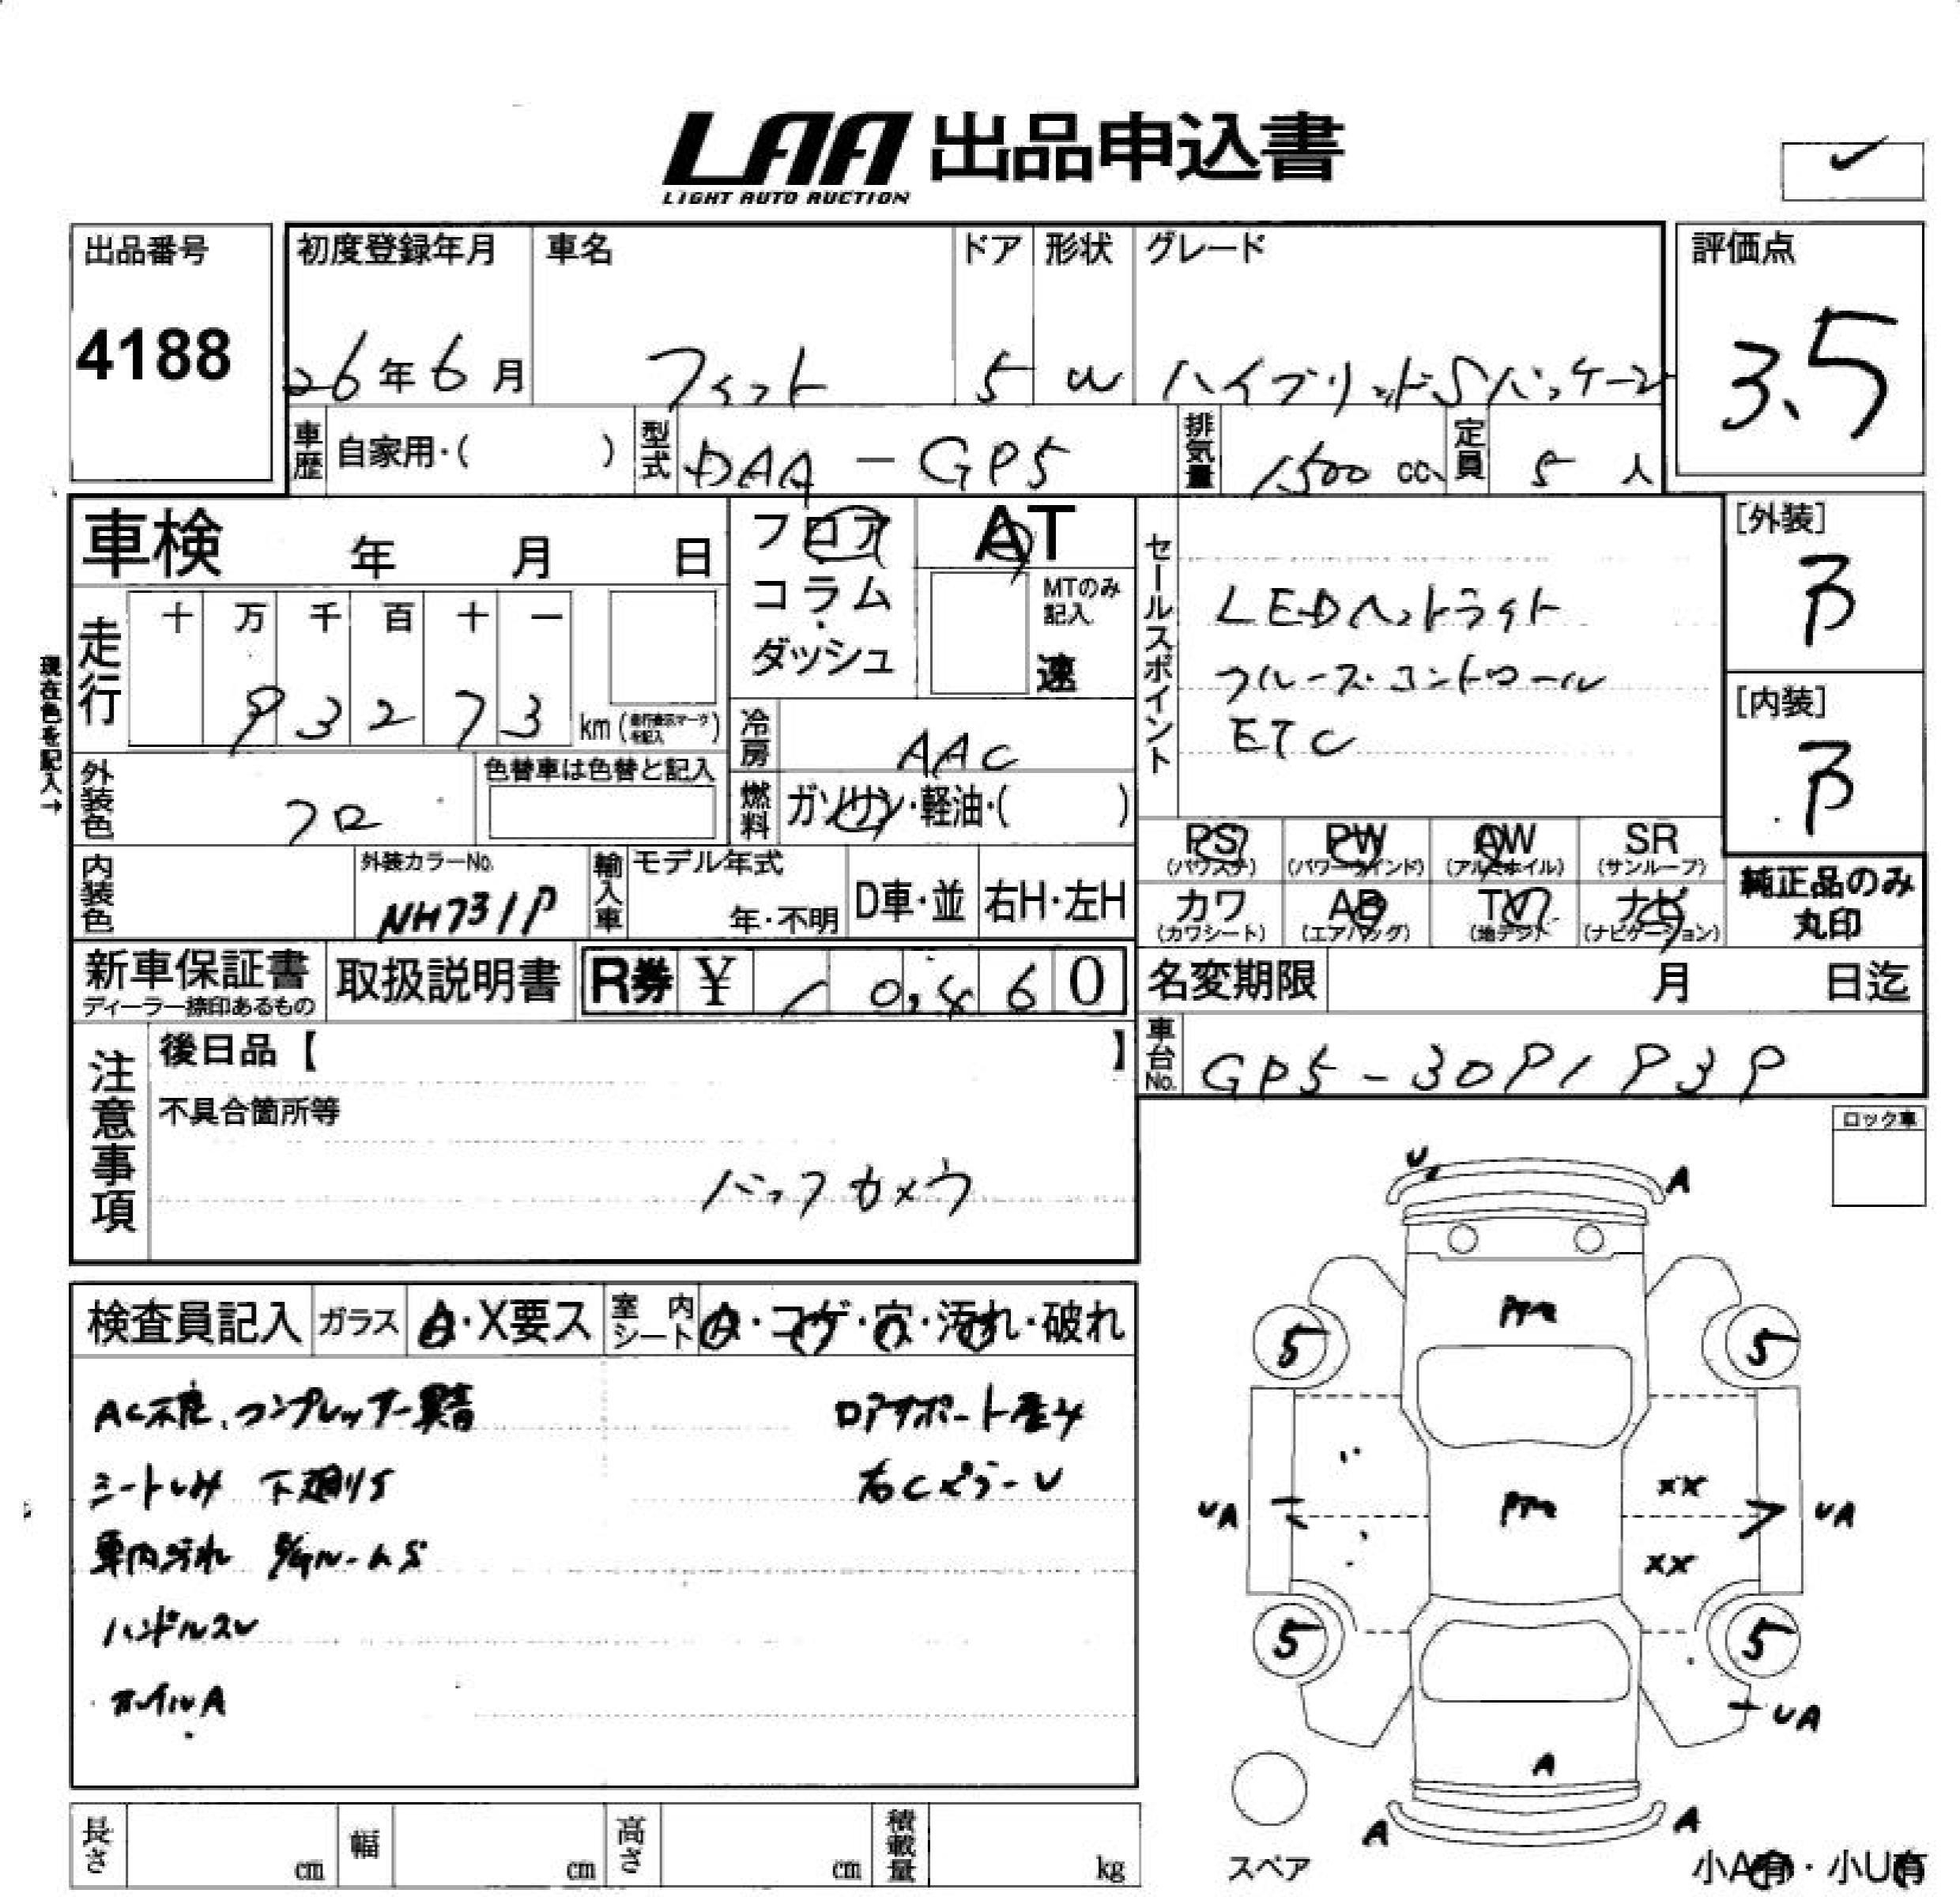 LAA 出品申込書
LIGHT AUTO AUCTION
出品番号
4188
初度登録年月
26年6月
車名
フィット
ドア
5
形状
W
グレード
ハイブリッドSパッケージ
評価点
3.5
車歴 自家用・( )
型式 DAA-GP5
排気量 1500 cc
定員 5 人
車検 年 月 日
フロア
コラム
ダッシュ
AT
MTのみ記入
速
セールスポイント
LEDヘットライト
クルーズコントロール
ETC
[外装]
B
[内装]
B
現在色を記入→
走行
十 万 千 百 十 一
9 3 2 7 3 km
冷房 AAC
外装色 クロ
色替車は色替と記入
燃料 ガソリン・軽油・( )
PS (パワステ)
PW (パワーウインド)
AW (アルミホイル)
SR (サンルーフ)
カワ (カワシート)
AB (エアバッグ)
TV (地デジ)
ナビ (ナビゲーション)
純正品のみ
丸印
内装色
外装カラーNo.
NH731P
輸入車
モデル年式
年・不明
D車・並
右H・左H
新車保証書
ディーラー捺印あるもの
取扱説明書
R券 ¥ 10,460
名変期限 月 日迄
車台No. GP5-3091939
注意事項
後日品【 】
不具合箇所等
バックカメラ
ロック車
検査員記入
ガラス A・X要ス
室内シート A・コゲ・穴・汚れ・破れ
AC不良、コンプレッサー異音
ロアサポート歪み
シートしみ 下廻りS
右CピラーU
車内汚れ E/GルームS
ハンドルスレ
ホイルA
U
A
PTM
5
5
XX
UA
PTM
UA
XX
5
5
UA
A
A
A
スペア
小A有・小U有
長さ cm
幅 cm
高さ cm
積載量 kg